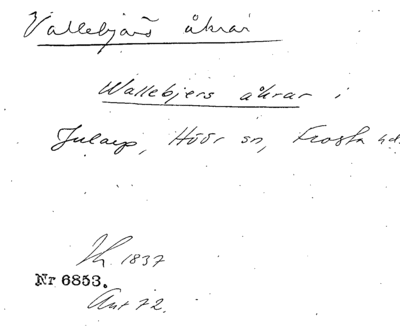 Vallebjärs åkrar
Wallebjers åkrar i
Julaep, Höör sn, Frosta hd.
1837
Nr 6853.
Ant 72.